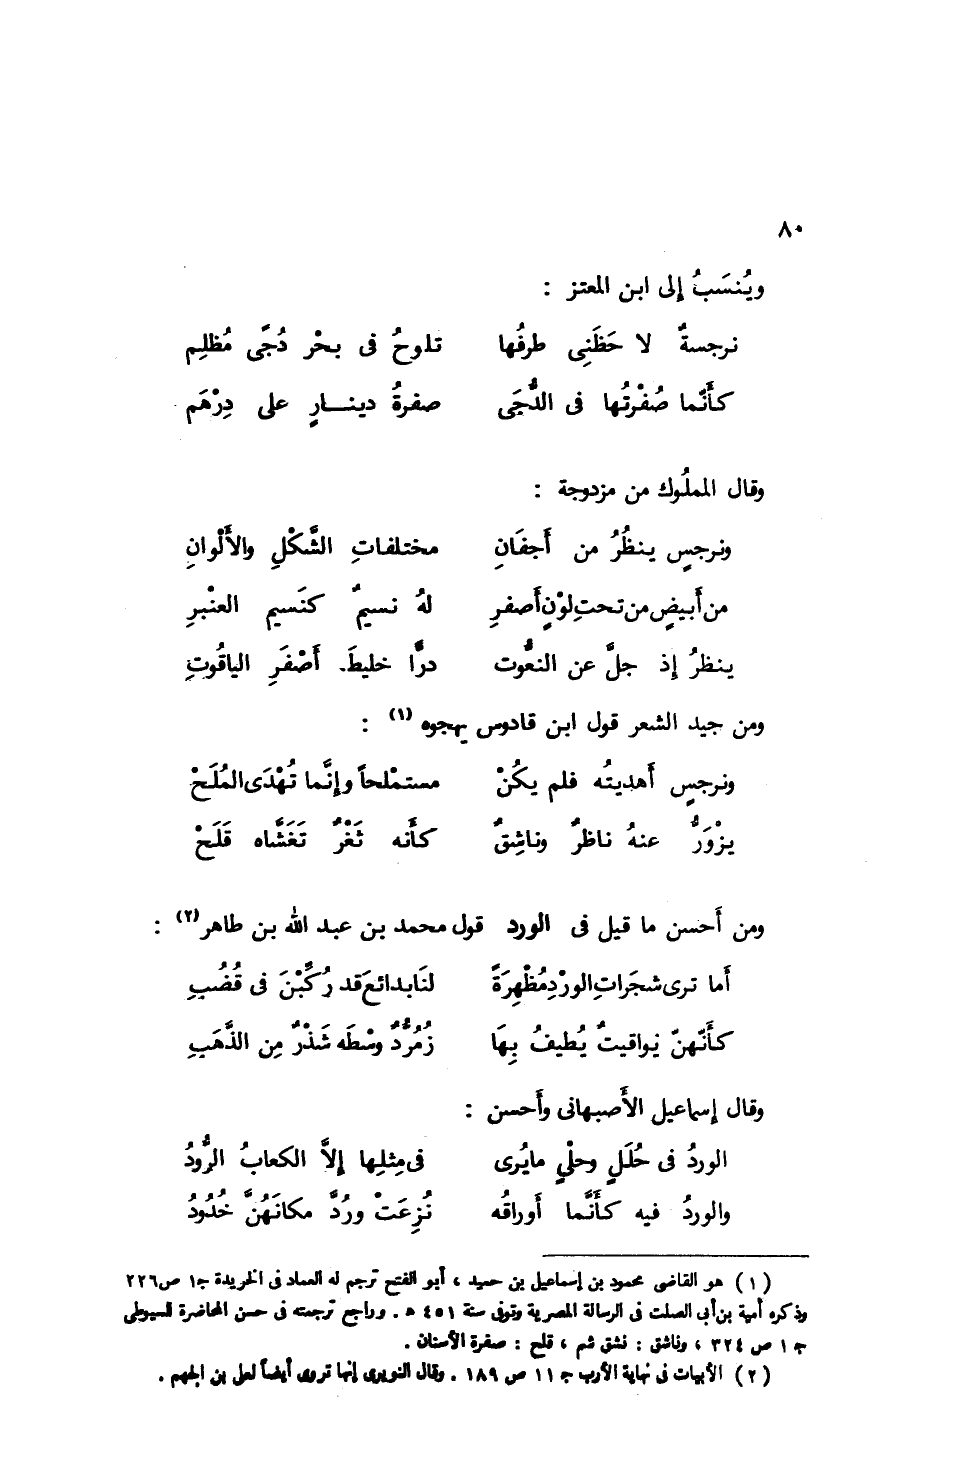 ٨٠
ويُنسَبُ إلى ابن المعتز :
نرجسةٌ لا حَظَنِى طرفُها تلوحُ فى بحْر دُجًى مُظلِم
كأَنّما صُفْرتُها فى الدُّجَى صفرةُ دينــارٍ على دِرْهَم
وقال المملُوك من مزدوجة :
ونرجسٍ ينظُرُ من أَجفَانِ مختلفاتِ الشَّكْلِ والأَلْوانِ
من أَبيضٍ من تحتِ لوْنٍ أَصفرِ لهُ نسيمٌ كنَسيمِ العنْبرِ
ينظرُ إذ جلَّ عن النعُّوت درًّا خليطَ أَصْفَرِ الياقُوتِ
ومن جيد الشعر قول ابن قادوس يهجوه (١) :
ونرجسٍ أَهديتُه فلم يكُنْ مستمْلحاً وإنَّما تُهْدَى المُلَحْ
يزْوَرُّ عنهُ ناظرٌ وناشِقٌ كأَنه ثَغْرٌ تَغَشَّاه قَلَحْ
ومن أَحسن ما قيل فى الورد قول محمد بن عبد الله بن طاهر (٢) :
أَما ترى شجَرَاتِ الورْدِ مُظْهِرَةً لنَا بدائعَ قد رُكِّبْنَ فى قُضُبِ
كأَنّهنّ يواقيتٌ يُطيفُ بِهَا زُمُرُّدٌ وسْطَه شَذْرٌ مِن الذَّهَبِ
وقال إسماعيل الأَصبهانى وأَحسن :
الوردُ فى حُلَلٍ وحلْيٍ مايُرى فى مِثلِها إلاَّ الكعابُ الرُّودُ
والوردُ فيه كأَنَّما أَوراقُه نُزِعَتْ ورُدَّ مكانَهُنَّ خُدُودُ
(١) هو القاضى محمود بن إسماعيل بن حميد ، أبو الفتح ترجم له العماد فى الخريدة ج١ ص٢٢٦
وذكره أمية بن أبى الصلت فى الرسالة المصرية وتوفى سنة ٤٥١ ه . وراجع ترجمته فى حسن المحاضرة للسيوطى
ج ١ ص ٣٢٤ ، وناشق : نشق شم ، قلح : صفرة الأسنان .
(٢) الأبيات فى نهاية الأرب ج ١١ ص ١٨٩ . وقال النويرى إنها تروى أيضاً لعلى بن الجهم .